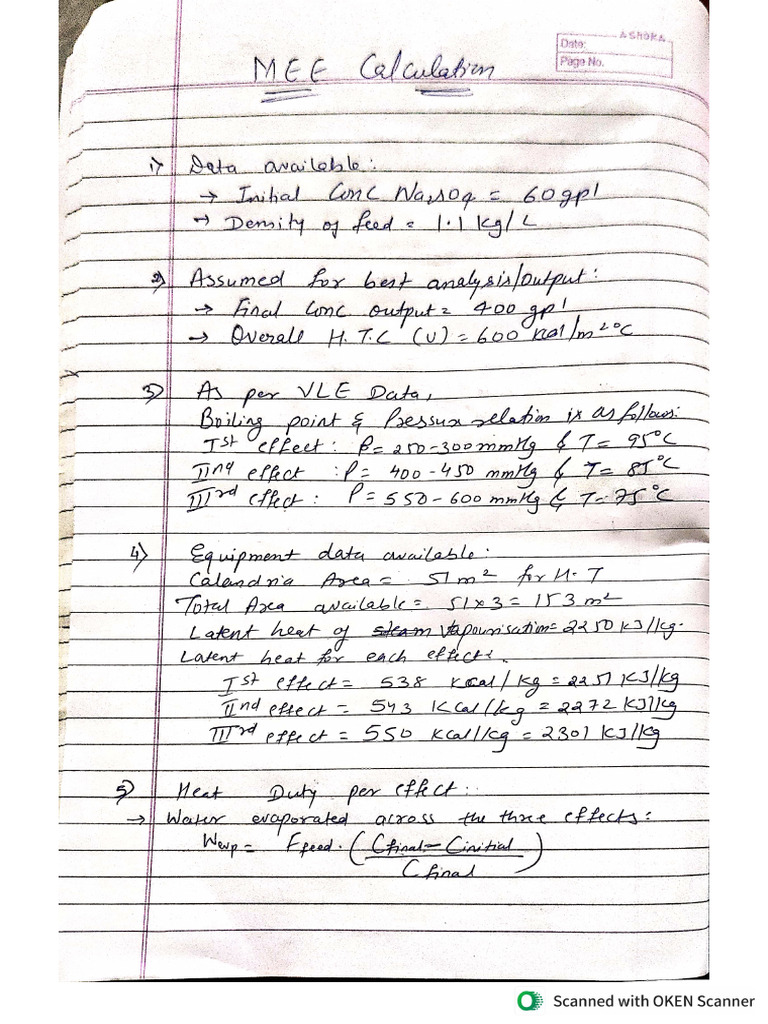 ASHOKA
Date:
Page No.
MEE Calculation
1) Data available:
→ Initial Conc Na2SO4 = 60 gpl
→ Density of feed = 1.1 kg/L
2) Assumed for best analysis/output:
→ Final Conc output = 400 gpl
→ Overall H.T.C (U) = 600 kcal/m2°C
3) As per VLE Data,
Boiling point & Pressure relation is as follows:
Ist effect: P = 250-300 mmHg & T = 95°C
IInd effect : P = 400-450 mmHg & T = 85°C
IIIrd effect : P = 550-600 mmHg & T = 75°C
4) Equipment data available:
Calandria Area = 51 m2 for H.T
Total Area available = 51 x 3 = 153 m2
Latent heat of steam Vapourisation = 2250 KJ/kg.
Latent heat for each effect:
Ist effect = 538 kcal/kg = 2251 KJ/kg
IInd effect = 543 Kcal/kg = 2272 KJ/kg
IIIrd effect = 550 Kcal/kg = 2301 KJ/kg
5) Heat Duty per effect:
→ Water evaporated across the three effects:
Wevp = Ffeed . (Cfinal - Cinitial / Cfinal)
Scanned with OKEN Scanner